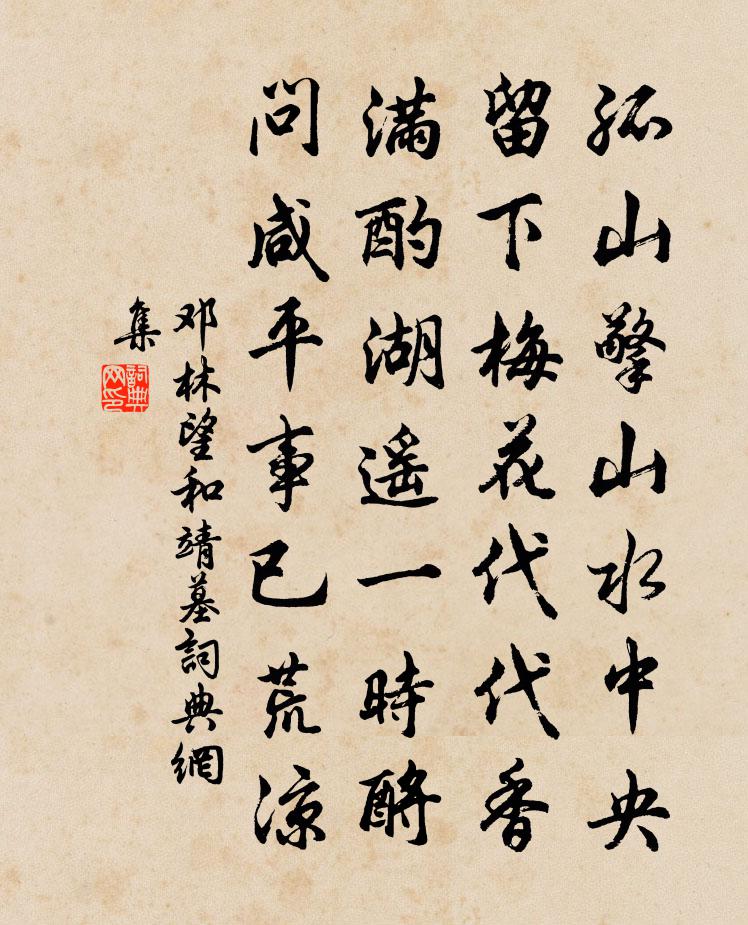 孤山擎山水中央
留下梅花代代香
满酌湖遥一時酹
问咸平事已荒凉
邓林望和靖墓詞典網
集
詞典
网印